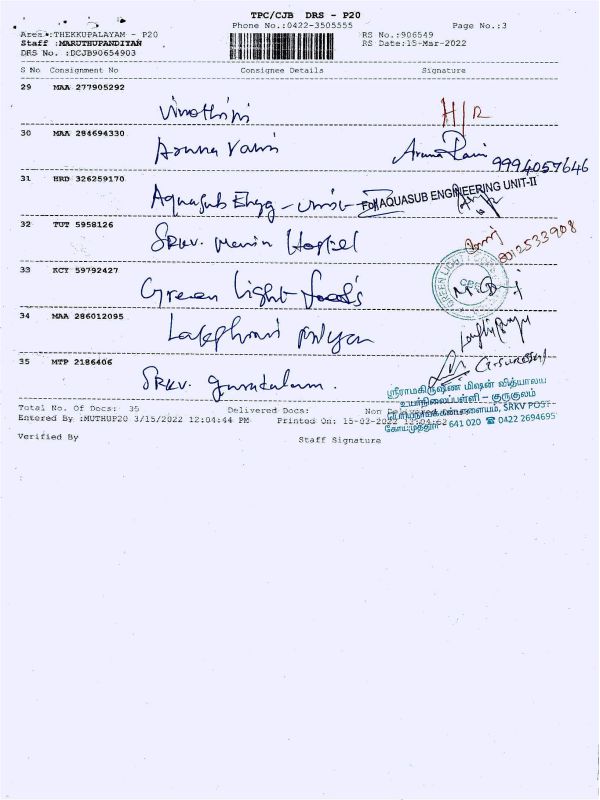 TPC/CJB DRS - P20
Phone No.:0422-3505555
Page No.:3
Area :THEKKUPALAYAM - P20
RS No.:906549
Staff :MARUTHUPANDIYAN
RS Date:15-Mar-2022
DRS No. :DCJB90654903
S No Consignment No Consignee Details Signature
29 MAA 277905292
Vinothini H/R
30 MAA 284694330
Aruna Rani Aruna Rani 9994057646
31 HRD 326259170
Aquasub Engg - Unit- For AQUASUB ENGINEERING UNIT-II
32 TUT 5958126
SRKV. Hostel
33 KCY 59792427
Green Light Foods
34 MAA 286012095
35 MTP 2186406
SRKV. Gurukulam.
G. Suresh
ஸ்ரீராமகிருஷ்ண மிஷன் வித்யாலயா
உயர்நிலைப்பள்ளி - குருகுலம்
Total No. Of Docs: 35 Delivered Docs: Non
SRKV POST
Entered By :MUTHUP20 3/15/2022 12:04:44 PM Printed On: 15-03-2022
கோயமுத்தூர் 641 020 ☎ 0422 2694695
Verified By Staff Signature